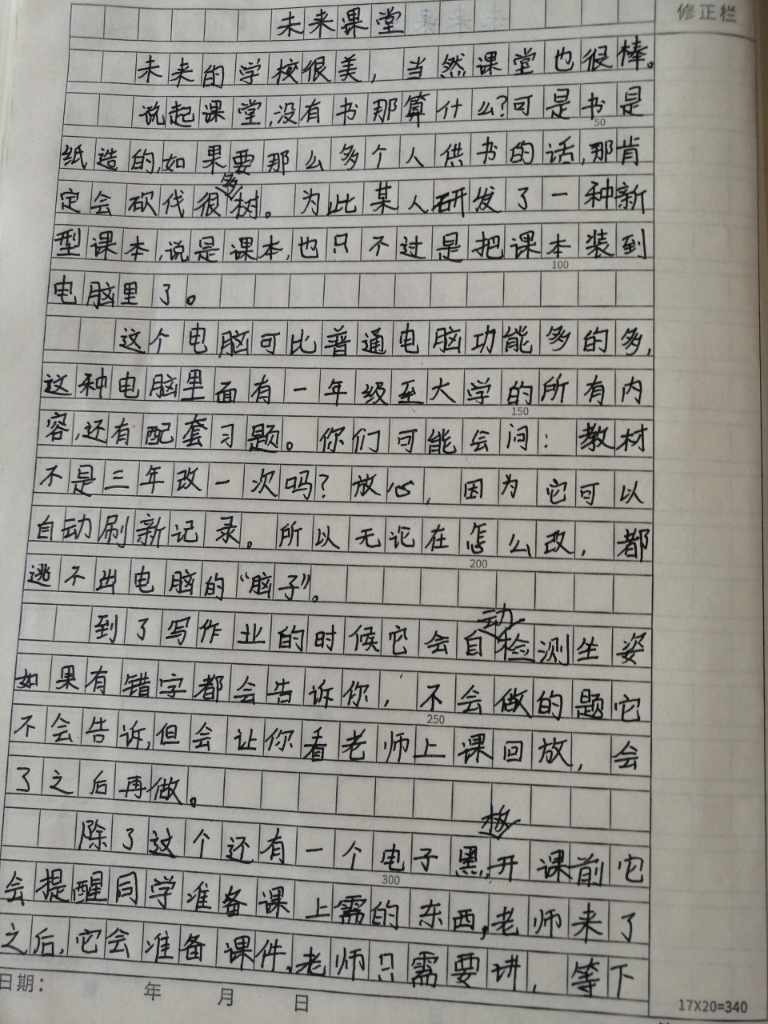 修正栏
未来课堂
未来的学校很美，当然课堂也很棒。
说起课堂,没有书那算什么?可是书是
50
纸造的,如果要那么多个人供书的话,那肯
定会砍伐很多树。为此某人研发了一种新
型课本,说是课本,也只不过是把课本装到
100
电脑里了。
这个电脑可比普通电脑功能多的多,
这种电脑里面有一年级至大学的所有内
150
容,还有配套习题。你们可能会问：教材
不是三年改一次吗？放心，因为它可以
自动刷新记录。所以无论在怎么改，都
200
逃不出电脑的“脑子”。
到了写作业的时候它会自动检测坐姿
如果有错字都会告诉你，不会做的题它
250
不会告诉,但会让你看老师上课回放，会
了之后再做。
除了这个还有一个电子黑板,开课前它
300
会提醒同学准备课上需的东西,老师来了
之后,它会准备课件,老师只需要讲，等下
日期： 年 月 日
17X20=340